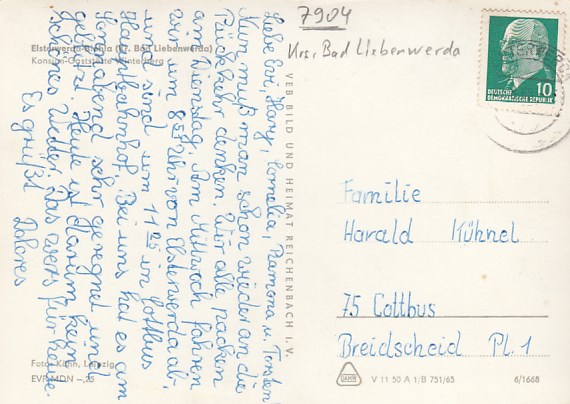 7904
Krs. Bad Liebenwerda
Elsterwerda-Biehla (Kr. Bad Liebenwerda)
Konsum-Gaststätte Winterberg
Liebe Evi, Harry, Cornelia, Ramona u. Torsten!
Nun muß man schon wieder an die
Rückkehr denken. Wir alle packen
am Dienstag. Am Mittwoch fahren
wir um 8 Uhr von Elsterwerda ab,
und sind um 11 in Cottbus
Hauptbahnhof. Bei uns hat es am
Sonnabend sehr geregnet und
gestürmt. Heute ist warum kein
schönes Wetter. Das wars für heute.
Es grüßt Dolores
Foto: Kühn, Leipzig
EVP MDN -,25
VEB BILD UND HEIMAT REICHENBACH I. V.
10
DEUTSCHE
DEMOKRATISCHE REPUBLIK
Familie
Harald Kühnel
75 Cottbus
Breidscheid Pl. 1
V 11 50 A 1/B 751/65
6/1668